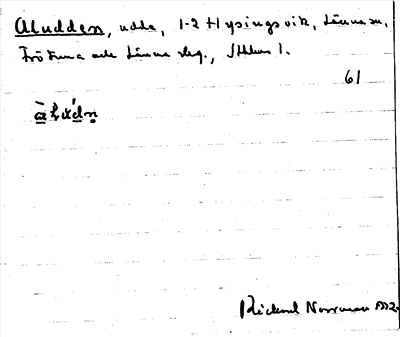 Aludden, udde, 1-2 Hysingsvik, Länna sn,
Frötuna och Länna skg., Sthlms l.
61
Rickard Norrman 1932.